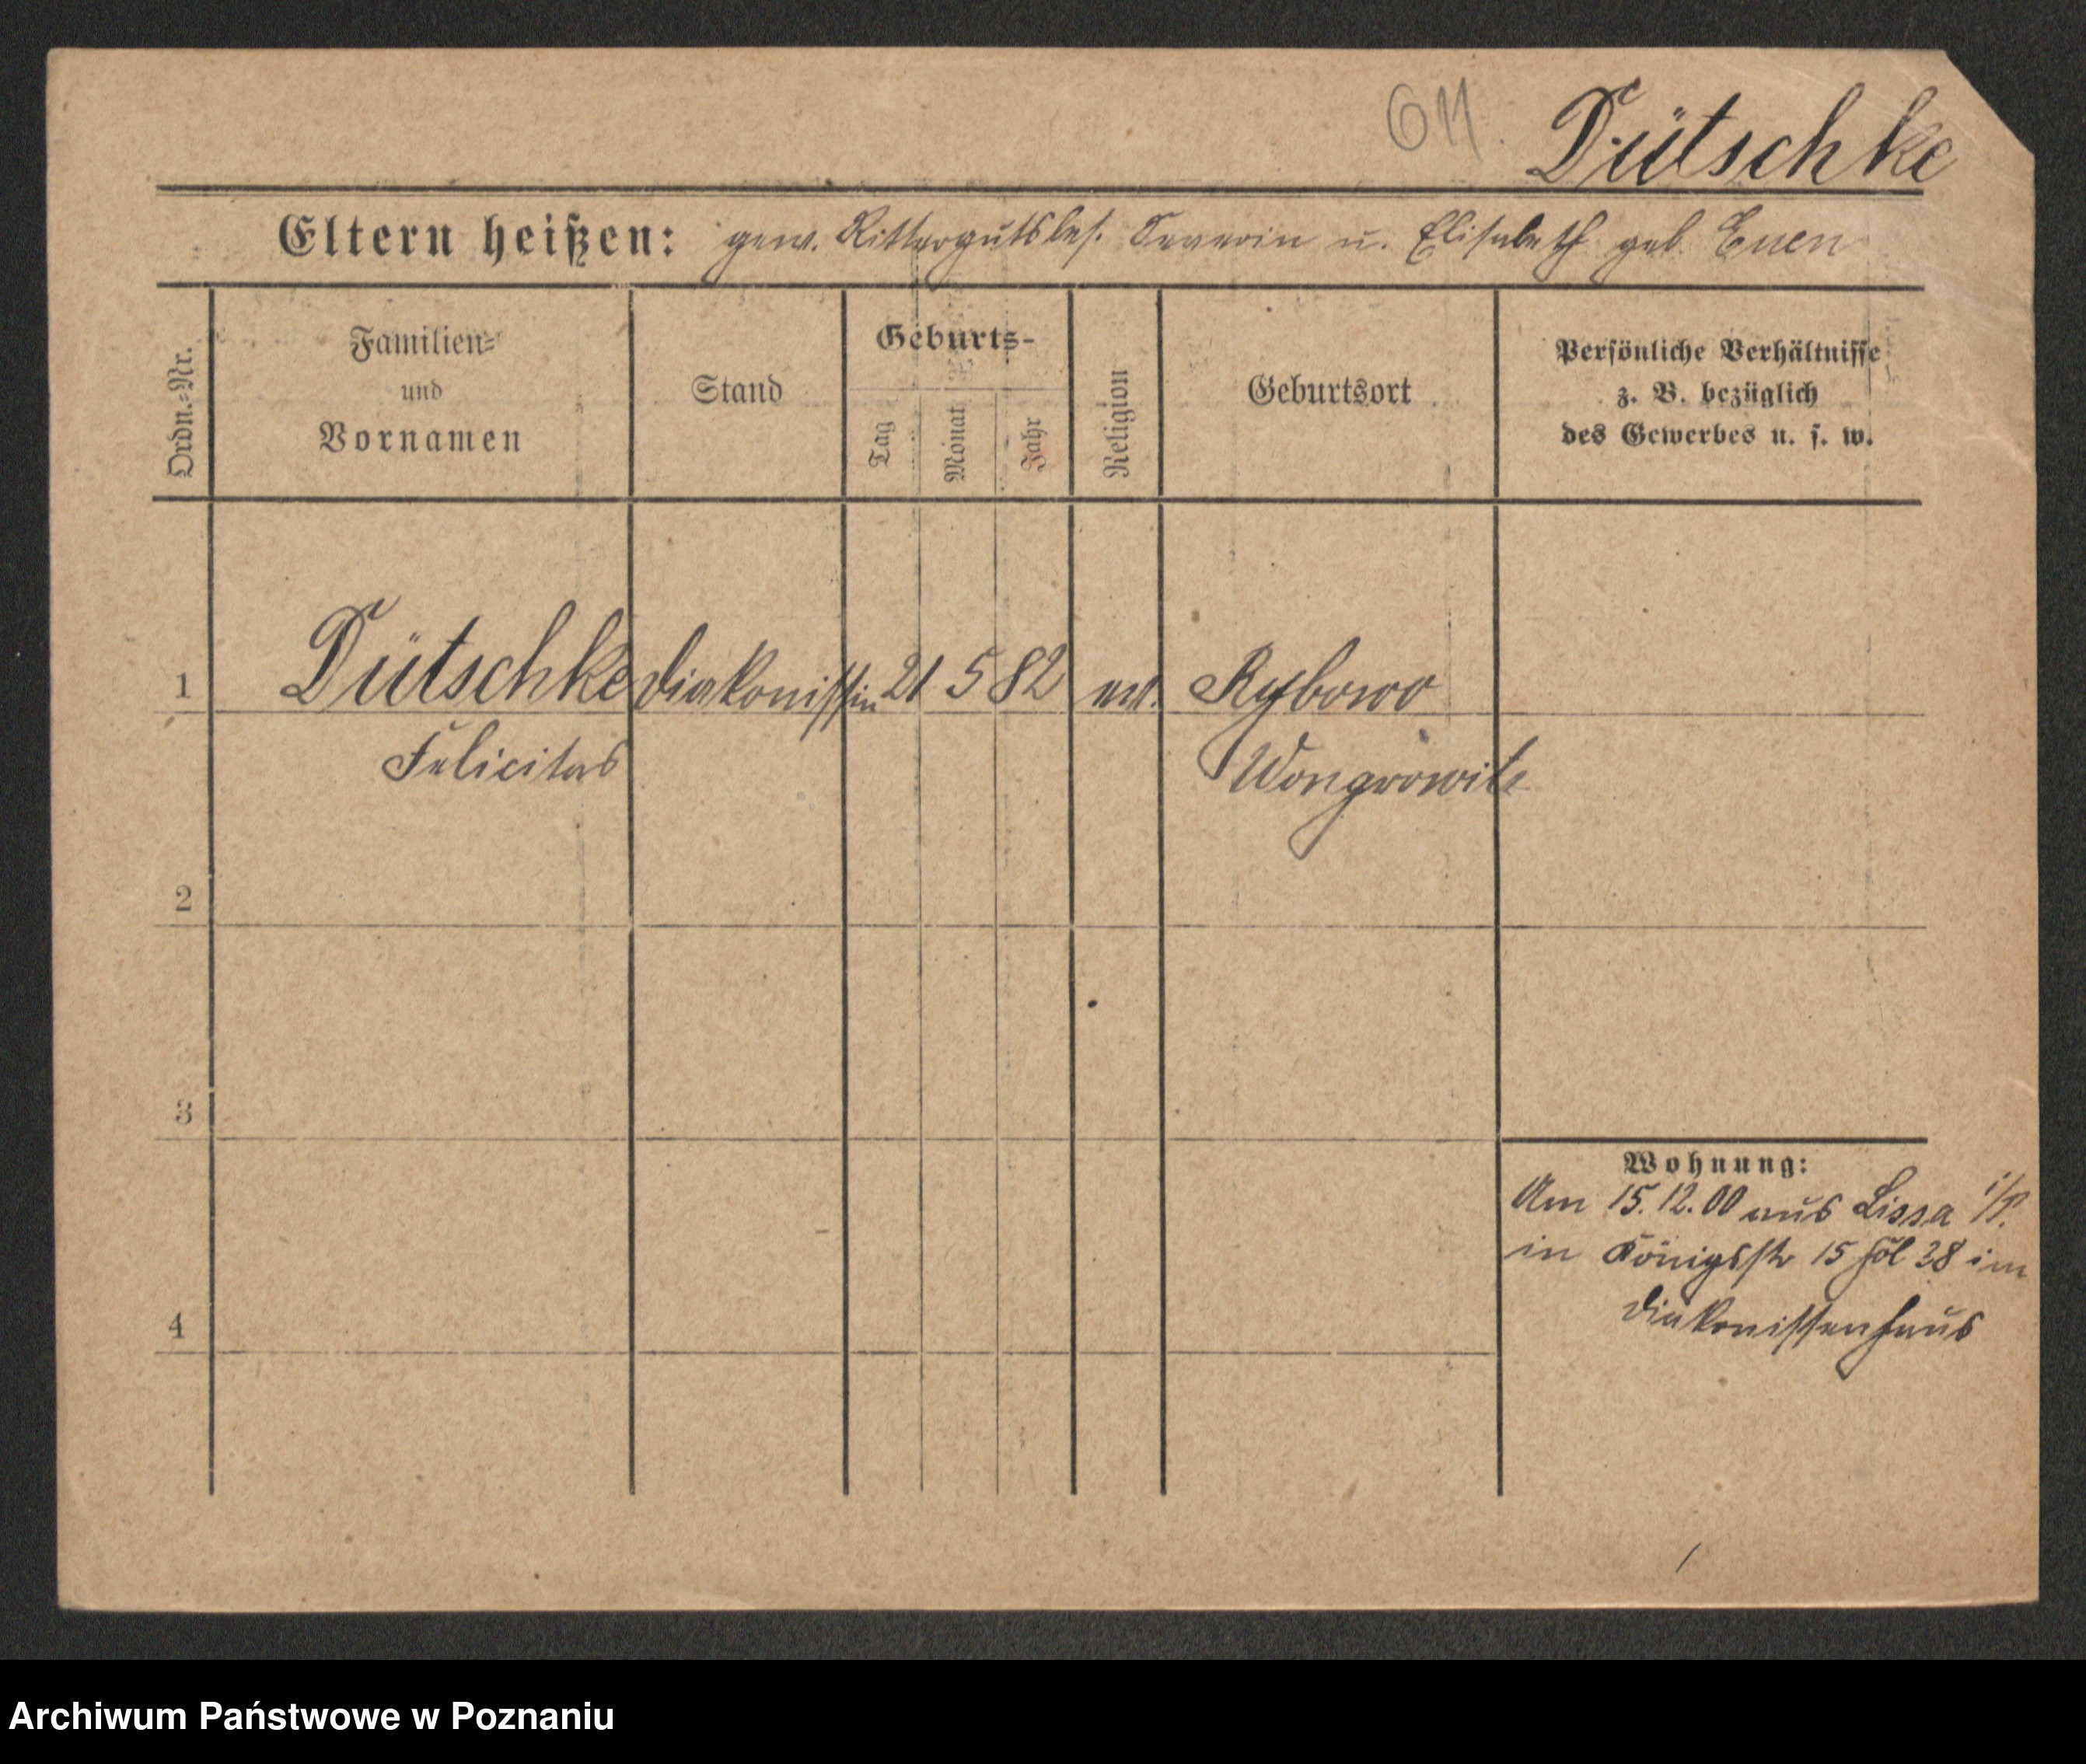 611. Dütschke
Eltern heißen: gew. Rittergutsbes. Severin u. Elisabeth geb. Euen
Ordn.-Nr.
Familien- und Vornamen
Stand
Geburts-
Tag
Monat
Jahr
Religion
Geburtsort
Persönliche Verhältnisse
z. B. bezüglich
des Gewerbes u. s. w.
1 Dütschke Diakonissin 21 5 82 ev. Rybowo
Felicitas Wongrowitz
2
3
Wohnung:
Am 15.12.00 aus Lissa i/P.
in Königsstr 15 fol 38 im
4 Diakonissenhaus
Archiwum Państwowe w Poznaniu